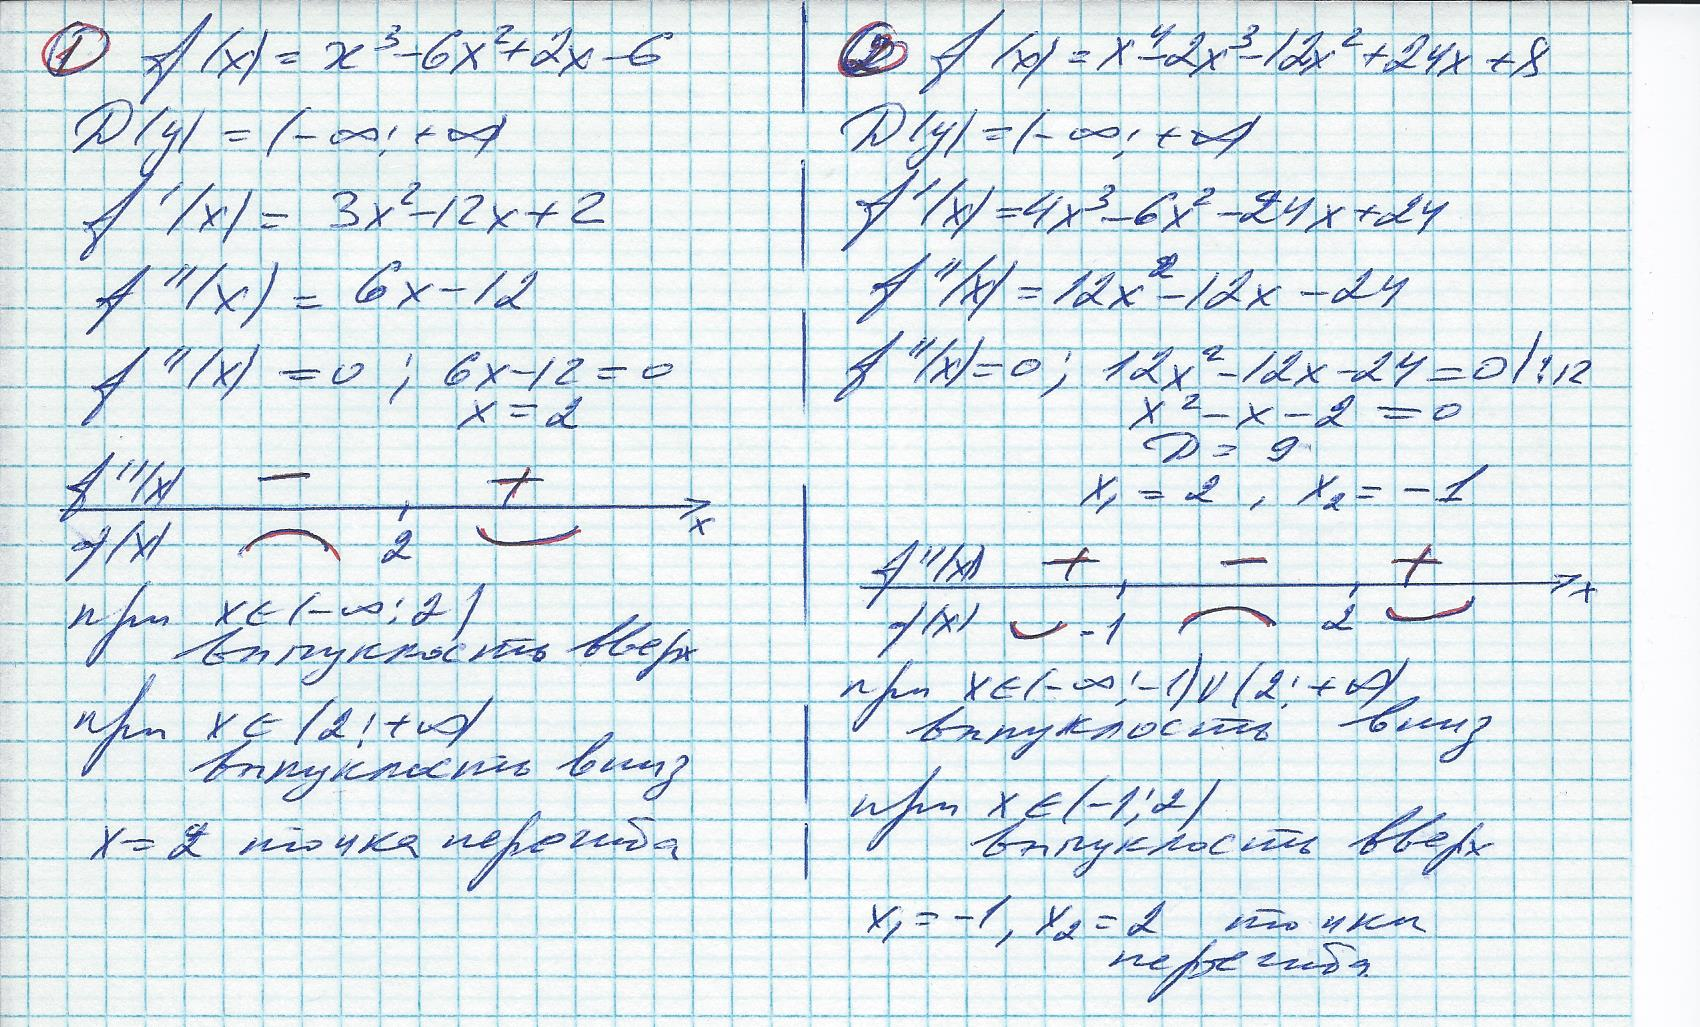 1 f(x) = x³-6x²+2x-6
D(y) = (-∞; +∞)
f'(x) = 3x²-12x+2
f''(x) = 6x-12
f''(x) = 0; 6x-12=0
x = 2
f''(x) - +
f(x) 2 x
при x∈(-∞; 2)
выпуклость вверх
при x∈(2; +∞)
выпуклость вниз
x=2 точка перегиба
2 f(x) = x⁴-2x³-12x²+24x+8
D(y) = (-∞; +∞)
f'(x) = 4x³-6x²-24x+24
f''(x) = 12x²-12x-24
f''(x)=0; 12x²-12x-24=0 |:12
x²-x-2=0
D = 9
x₁ = 2, x₂ = -1
f''(x) + - +
f(x) -1 2 x
при x∈(-∞; -1)∪(2; +∞)
выпуклость вниз
при x∈(-1; 2)
выпуклость вверх
x₁=-1, x₂=2 точки
перегиба